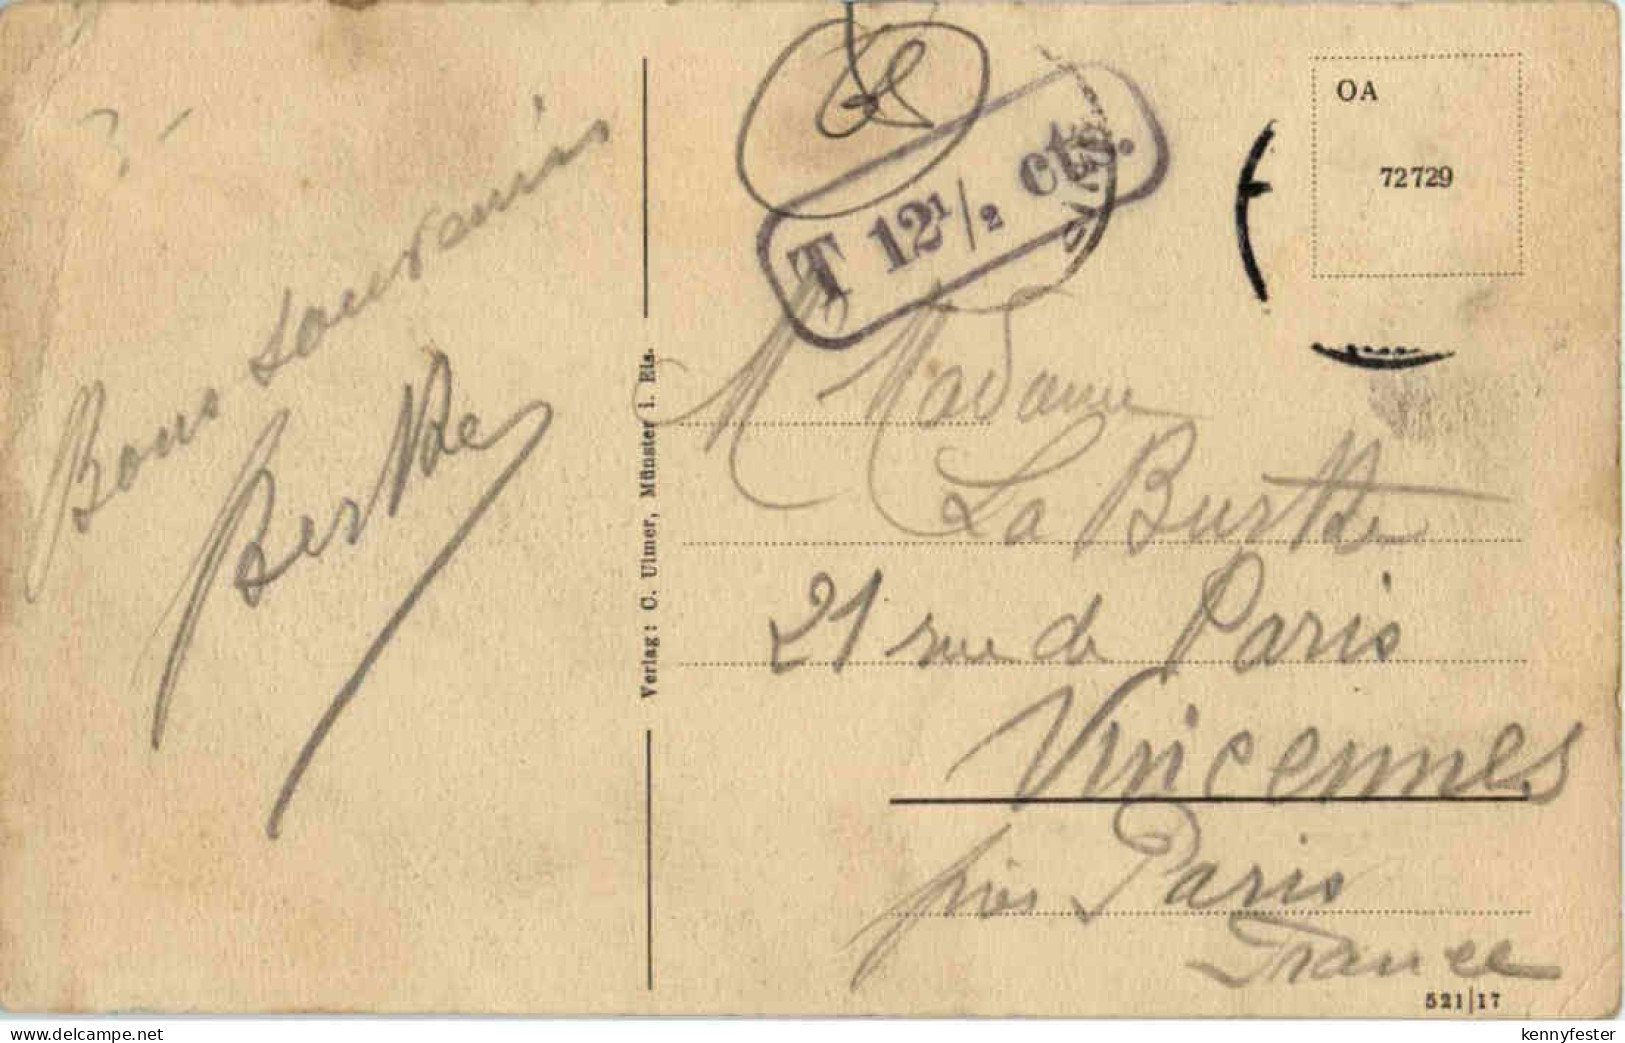 3-
Bons Souvenirs
Berthe
Verlag: C. Ulmer, Münster i. Els.
T 12 1/2 cts.
OA
72729
M Madame
La Burthe
21 rue de Paris
Vincennes
près Paris
France
521|17
kennyfester